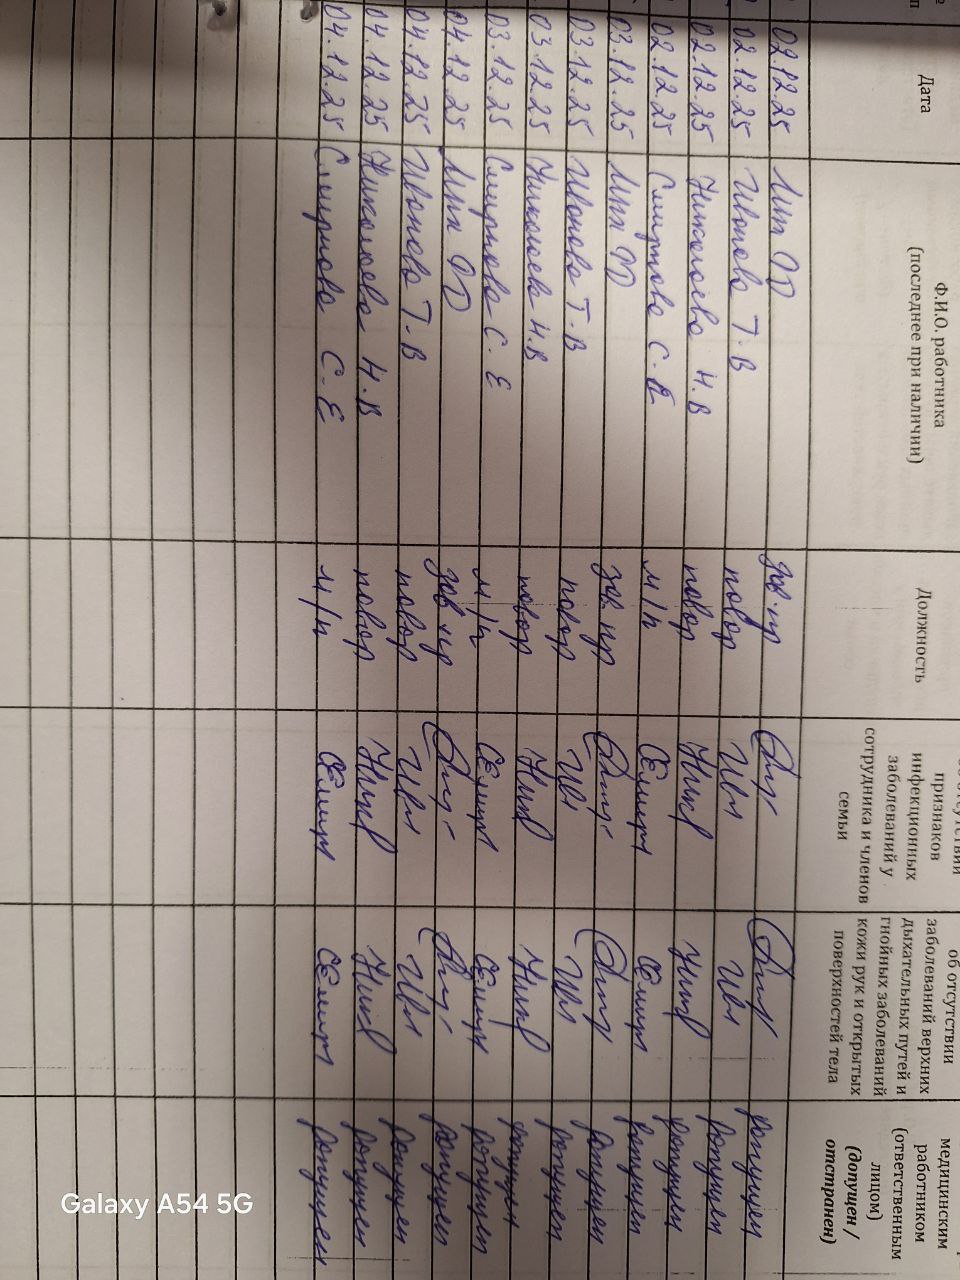 Дата
Ф.И.О. работника
(последнее при наличии)
Должность
признаков
инфекционных
заболеваний у
сотрудника и членов
семьи
об отсутствии
заболеваний верхних
дыхательных путей и
гнойных заболеваний
кожи рук и открытых
поверхностей тела
медицинским
работником
(ответственным
лицом)
(допущен /
отстранен)
02.12.25 зав.пр допущен
02.12.25 Иванова Т.В повар допущен
02.12.25 Николаева Н.В повар допущен
02.12.25 Смирнова С.Е м/п допущен
03.12.25 зав.пр допущен
03.12.25 Иванова Т.В повар допущен
03.12.25 Николаева Н.В повар допущен
03.12.25 Смирнова С.Е м/п допущен
04.12.25 зав.пр допущен
04.12.25 Иванова Т.В повар допущен
04.12.25 Николаева Н.В повар допущен
04.12.25 Смирнова С.Е м/п допущен
Galaxy A54 5G